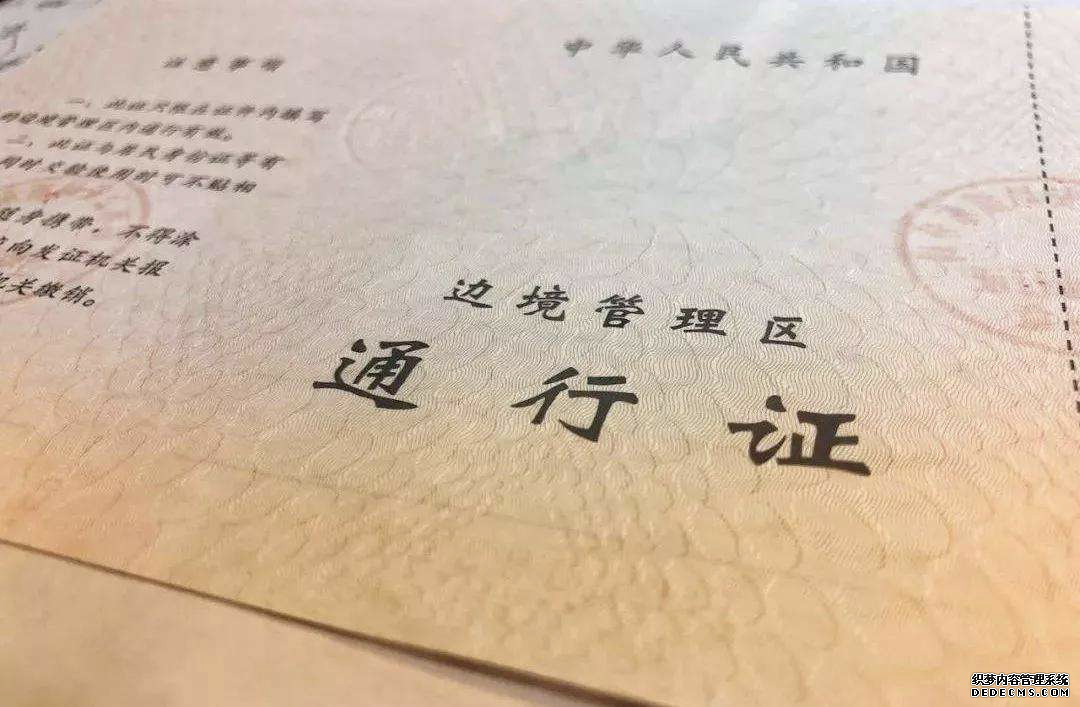 注意事项
一、此证只限在证件内填写
的边境管理区内通行有效。
二、此证与居民身份证等有
同时交验使用时可不贴相
携带，不得涂
向发证机关报
机关缴销。
中华人民共和国
边境管理区
通行证
织梦内容管理系统
DEDECMS.COM